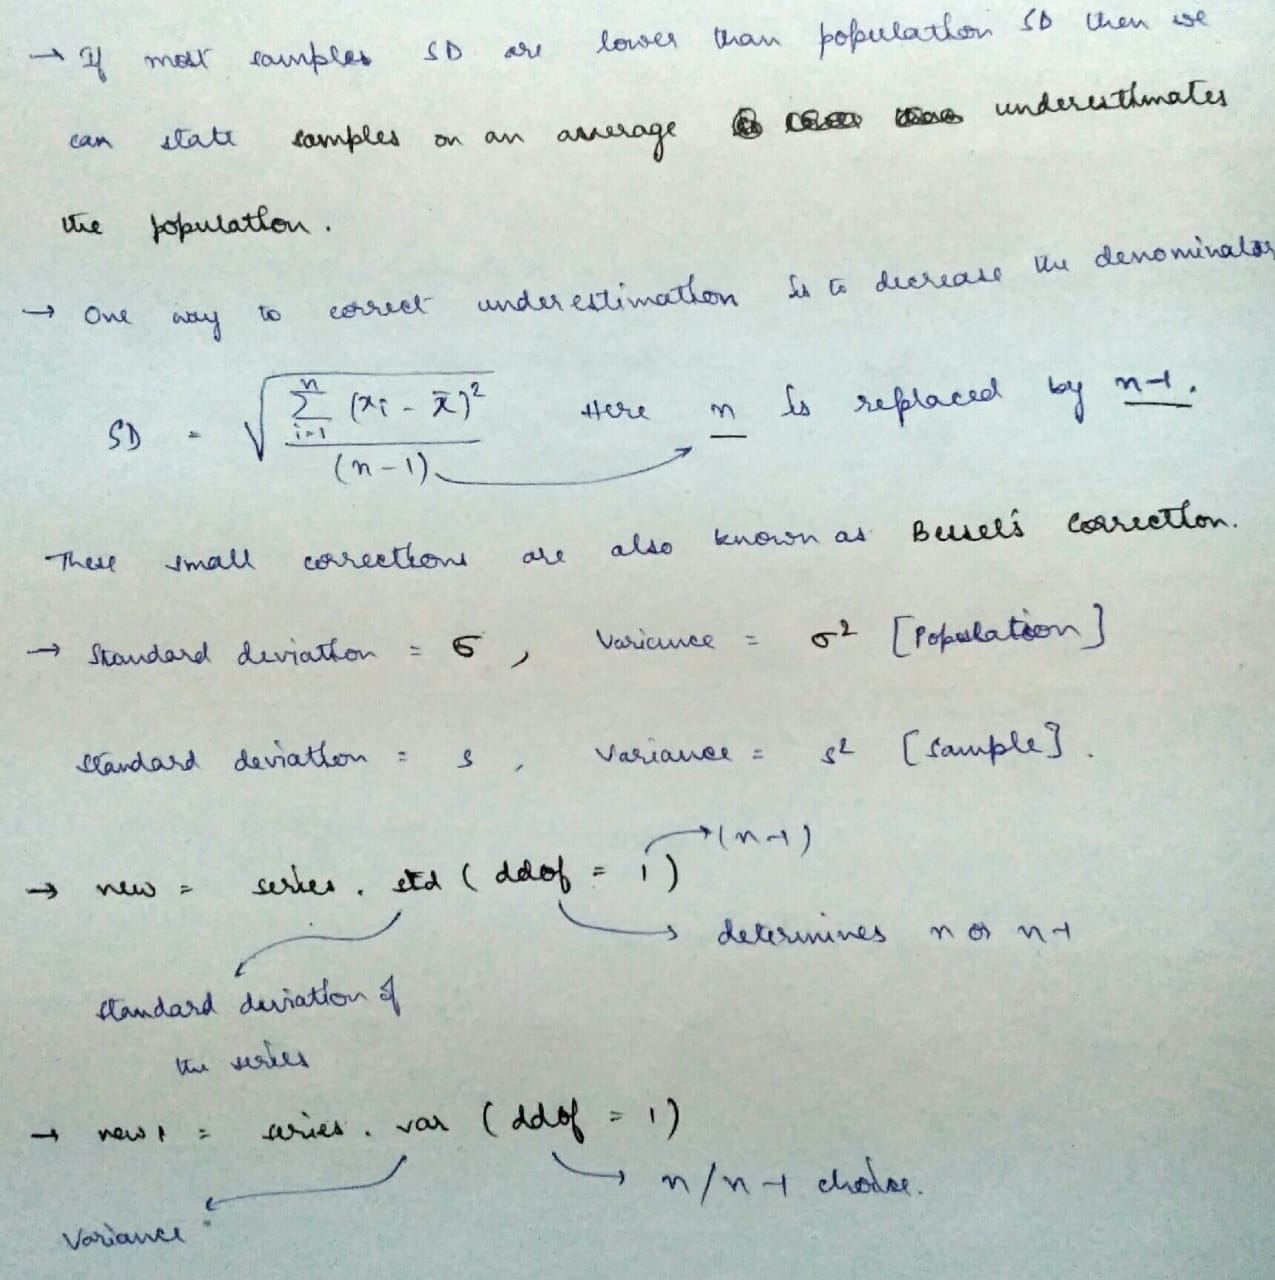 → If most samples SD are lower than population SD then we
can state samples on an average underestimates
the population.
→ One way to correct underestimation is to decrease the denominator
SD = √( Σ_{i=1}^{n} (xi - x̄)² / (n-1) ) Here n is replaced by n-1.
These small corrections are also known as Bessel's correction.
→ Standard deviation = σ, Variance = σ² [Population]
Standard deviation = s, Variance = s² [Sample].
→ (n-1)
→ new = series.std(ddof = 1)
→ determines n or n-1
standard deviation of
the series
→ new1 = series.var(ddof = 1)
→ n/n-1 choice.
Variance